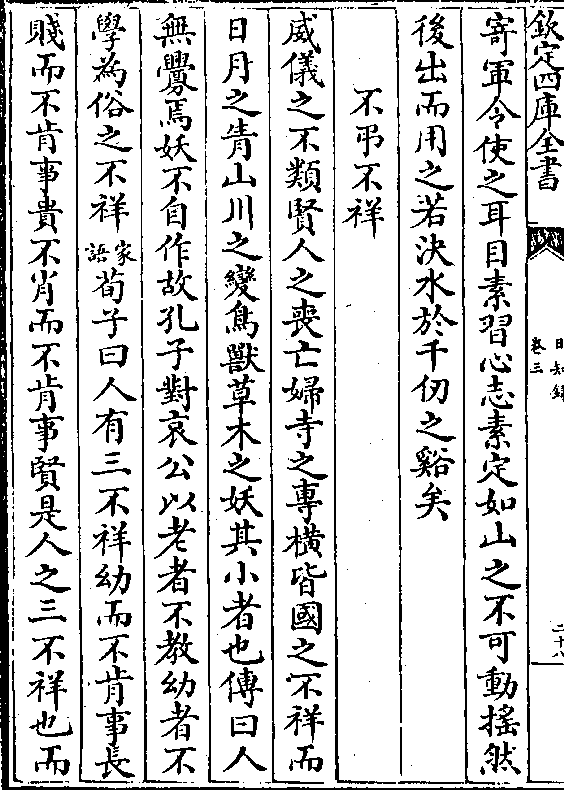 欽定四庫全書
日知錄
卷三
二十八
寄軍令使之耳目素習心志素定如山之不可動搖然
後出而用之若決水於千仞之谿矣
不弔不祥
威儀之不類賢人之喪亡婦寺之專橫皆國之不祥而
日月之眚山川之變鳥獸草木之妖其小者也傳曰人
無釁焉妖不自作故孔子對哀公以老者不教幼者不
學為俗之不祥家語荀子曰人有三不祥幼而不肯事長
賤而不肯事貴不肖而不肯事賢是人之三不祥也而